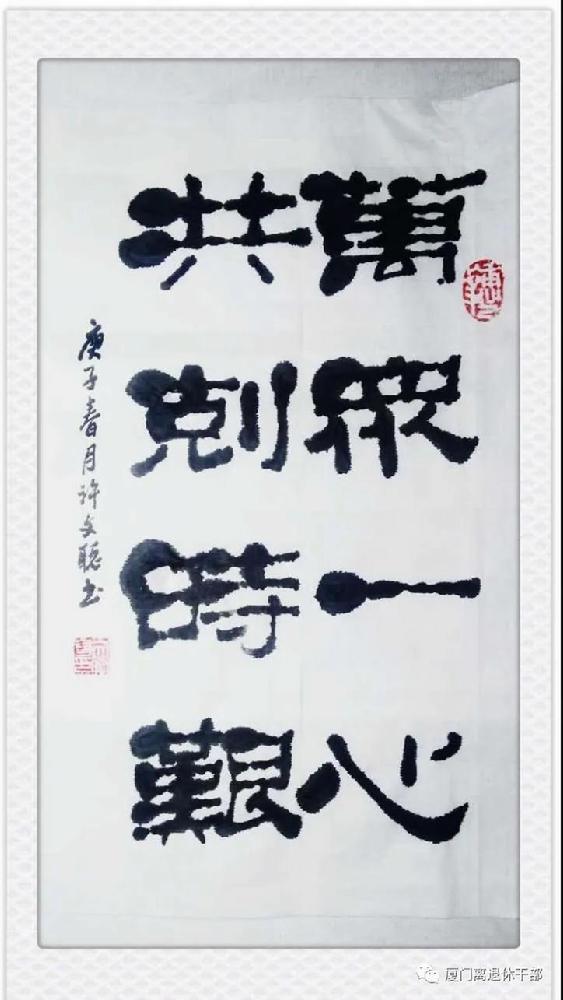 萬眾一心
共剋時艱
庚子春月許文聪书
厦门离退休干部